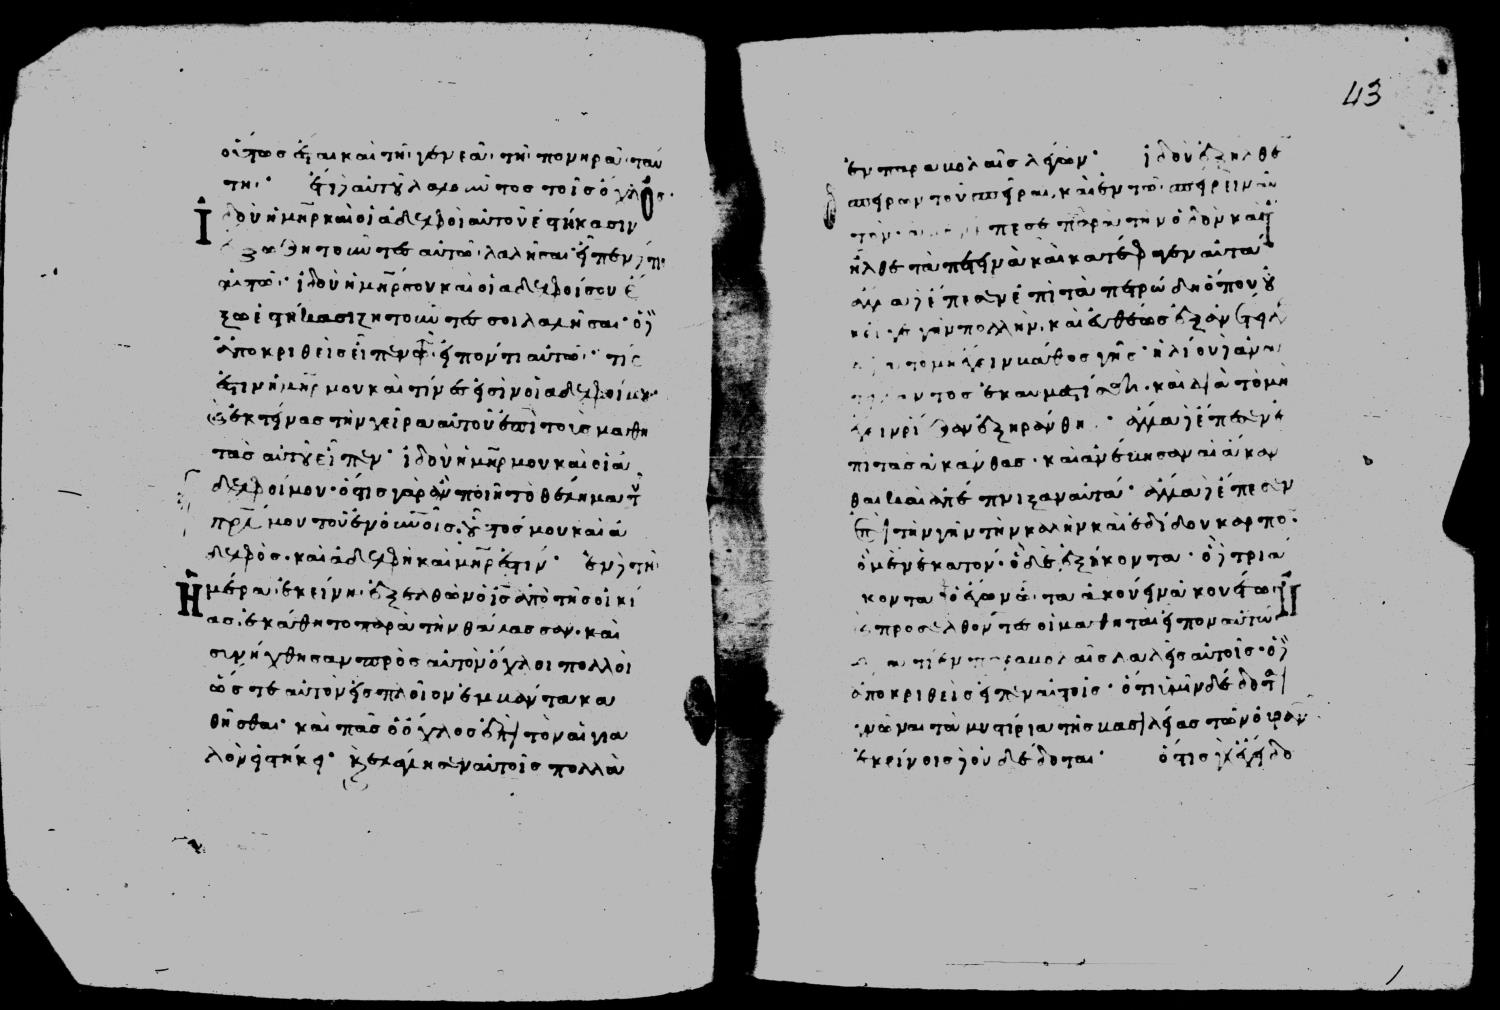 οὕτως ἔσται καὶ τῆ γενεᾶ τῆ πονηρᾶ ταύ
τη· ἔτι δὲ αὐτοῦ λαλοῦντος τοῖς ὄχλοις·
ἰδοὺ ἡ μηρ καὶ οἱ ἀδελφοὶ αὐτοῦ ἑστήκασιν
ἔξω ζητοῦντες αὐτῶ λαλῆσαι· εἶπεν δέ τις
αὐτῶ· ἰδοὺ ἡ μηρ σου καὶ οἱ ἀδελφοί σου ἔ
ξω ἑστήκασι ζητοῦντές σοι λαλῆσαι· ὁ δὲ
ἀποκριθεὶς εἶπεν τῶ εἰπόντι αὐτῶ· τίς
ἐστιν ἡ μηρ μου καὶ τίνες εἰσὶν οἱ ἀδελφοί μου·
καὶ ἐκτείνας τὴν χεῖρα αὐτοῦ ἐπὶ τοὺς μαθη
τὰς αὐτοῦ εἶπεν· ἰδοὺ ἡ μηρ μου καὶ οἱ ἀ
δελφοί μου· ὅστις γὰρ ἂν ποιῆ τὸ θέλημα τοῦ
πρς μου τοῦ ἐν οὐνοῖς, οὗτός μου καὶ ἀ
δελφὸς· καὶ ἀδελφὴ καὶ μηρ ἐστίν· ἐν δὲ τῆ
ἡμέρα ἐκείνη· ἐξελθὼν ὁ ις ἀπὸ τῆς οἰκί
ας· ἐκάθητο παρὰ τὴν θάλασσαν· καὶ
συνήχθησαν πρὸς αὐτὸν ὄχλοι πολλοὶ
ὥστε αὐτὸν εἰς πλοῖον ἐμβάντα κα
θῆσθαι· καὶ πᾶς ὁ ὄχλος ἐπὶ τὸν αἰγια
λὸν εἱστήκει· καὶ ἐλάλησεν αὐτοῖς πολλὰ
43
ἐν παραβολαῖς λέγων· ἰδοὺ ἐξῆλθε
ὁ σπείρων τοῦ σπείραι, καὶ ἐν τῶ σπείρειν
πεσε παρὰ τὴν ὁδὸν καὶ
ἦλθε τὰ πετεινὰ καὶ κατέφαγεν αὐτά·
ἄλλα δὲ ἔπεσεν ἐπὶ τὰ πετρώδη ὅπου οὐ
γῆν πολλήν, καὶ εὐθέως ἐξανέτειλε
τὸ μὴ ἔχειν βάθος γῆς· ἡλίου δὲ ἀνα
τείλαντος ἐκαυματίσθη· καὶ διὰ τὸ μὴ
ἔχειν ρίζαν ἐξηράνθη· ἄλλα δὲ ἔπεσεν ἐ
πὶ τὰς ἀκάνθας· καὶ ἀνέβησαν αἱ ἄκαν
θαι καὶ ἀπέπνιξαν αὐτά· ἄλλα δὲ ἔπεσεν
ἐπὶ τὴν γῆν τὴν καλὴν καὶ ἐδίδου καρπόν·
ὁ μὲν ἑκατόν· ὁ δὲ ἑξήκοντα· ὁ δὲ τριά
κοντα ὁ ἔχων ὦτα ἀκούειν ἀκουέτω·
προσελθόντες οἱ μαθηταὶ εἶπον αὐτῶ
τί ἐν παραβολαῖς λαλεῖς αὐτοῖς· ὁ δὲ
ἀποκριθεὶς εἶπεν αὐτοῖς· ὅτι ὑμῖν δέδοται
γνῶναι τὰ μυστήρια τῆς βασιλείας τῶν οὐρανῶν
ἐκείνοις δὲ οὐ δέδοται· ὅστις γὰρ ἔχει δο